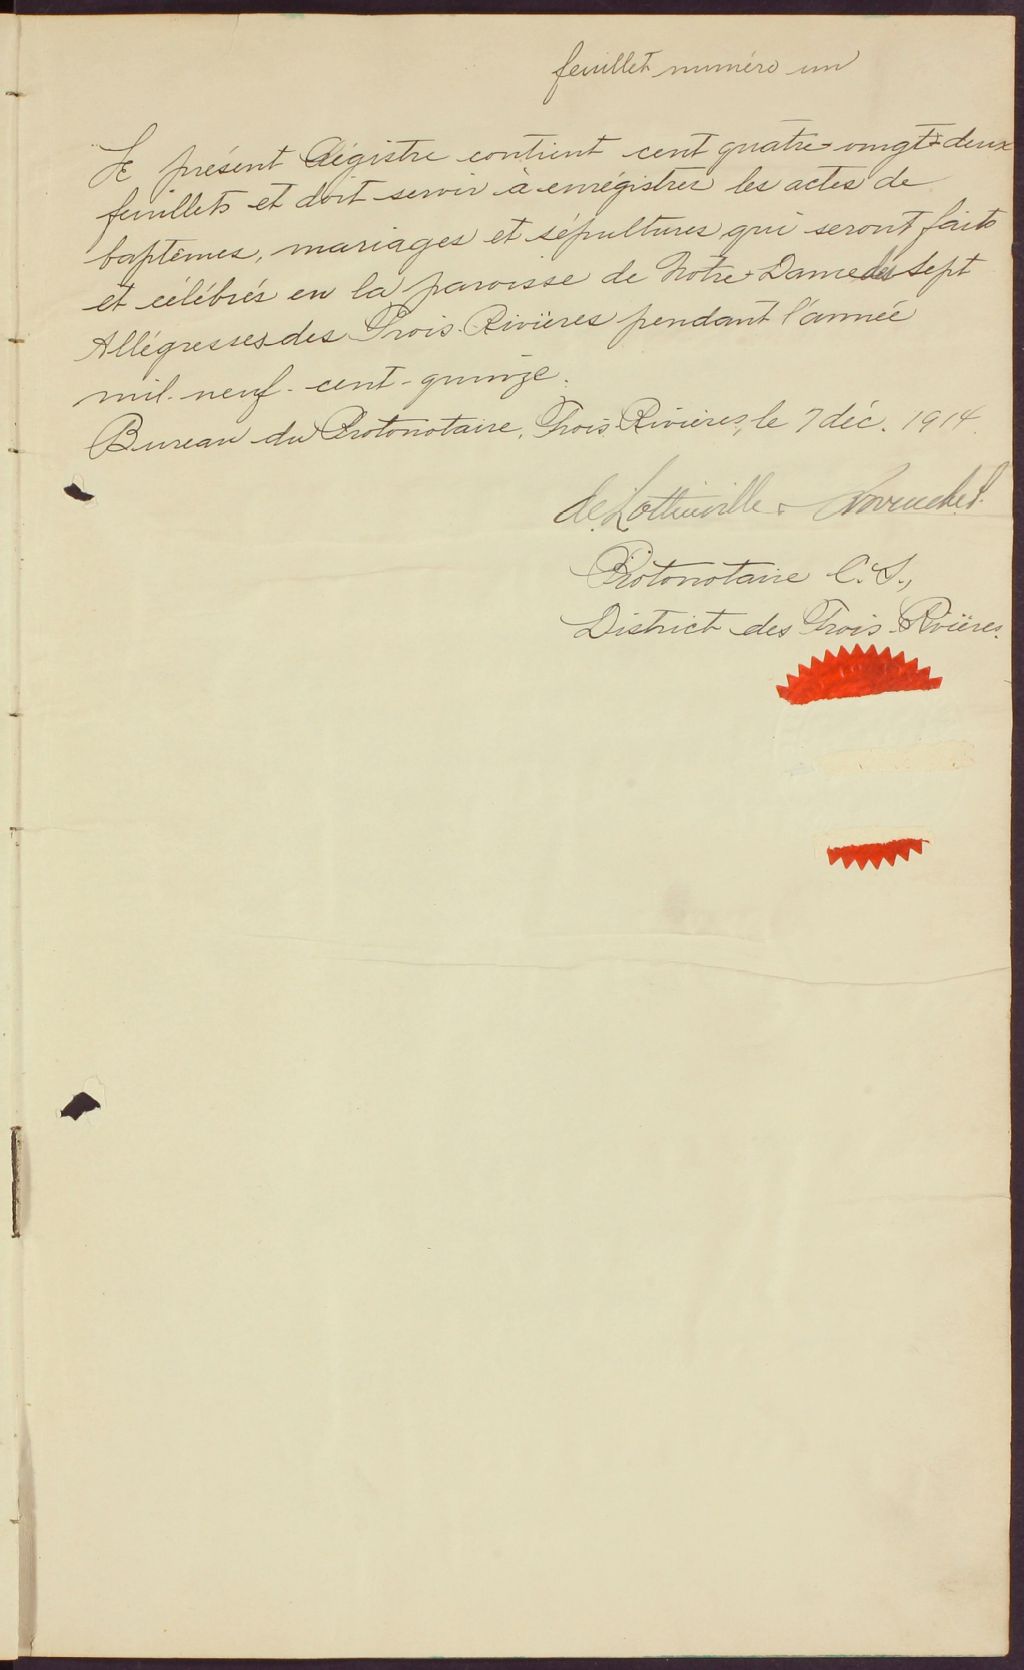 feuillet numéro un
Le présent Régistre contient cent quatre-vingt-deux
feuillets et doit servir à enrégistrer les actes de
baptêmes, mariages et sépultures qui seront faits
et célébrés en la paroisse de Notre-Dame des Sept
Allégresses des Trois-Rivières pendant l'année
mil-neuf-cent-quinze.
Bureau du Protonotaire, Trois-Rivières, le 7 déc. 1914.
de Lottinville &
Protonotaire C.S.,
District des Trois-Rivières.